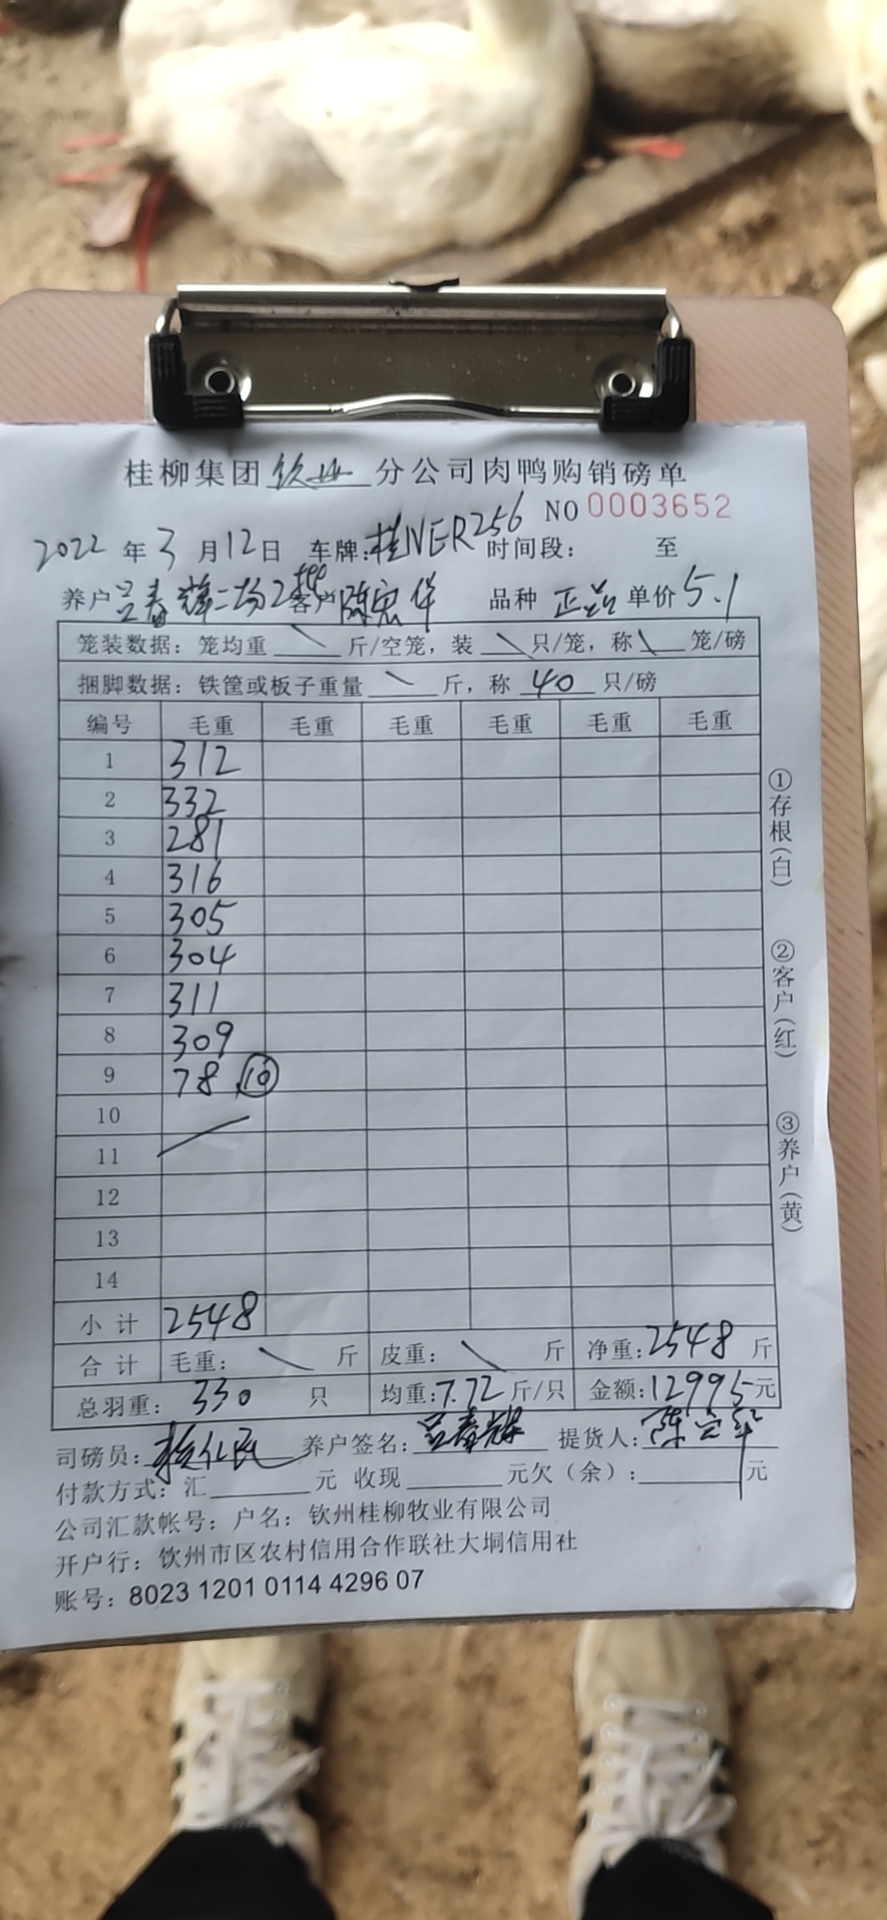 桂柳集团钦州分公司肉鸭购销磅单
NO 0003652
2022年3月12日 车牌:桂NER256 时间段: 至
养户吕春辉二场2批 客户陈宏华 品种 正品 单价5.1
笼装数据: 笼均重 \ 斤/空笼, 装 \ 只/笼, 称 \ 笼/磅
捆脚数据: 铁筐或板子重量 \ 斤, 称 40 只/磅
编号 毛重 毛重 毛重 毛重 毛重 毛重
1 312
2 332
3 281
4 316
5 305
6 304
7 311
8 309
9 78 ⑩
10
11
12
13
14
小计 2548
合计 毛重: \ 斤 皮重: \ 斤 净重:2548 斤
总羽重: 330 只 均重:7.72斤/只 金额:12995元
司磅员: 养户签名:吕春辉 提货人:陈宏华
付款方式: 汇 元 收现 元欠(余): 元
公司汇款帐号: 户名: 钦州桂柳牧业有限公司
开户行: 钦州市区农村信用合作联社大垌信用社
账号: 8023 1201 0114 4296 07
①存根(白)
②客户(红)
③养户(黄)